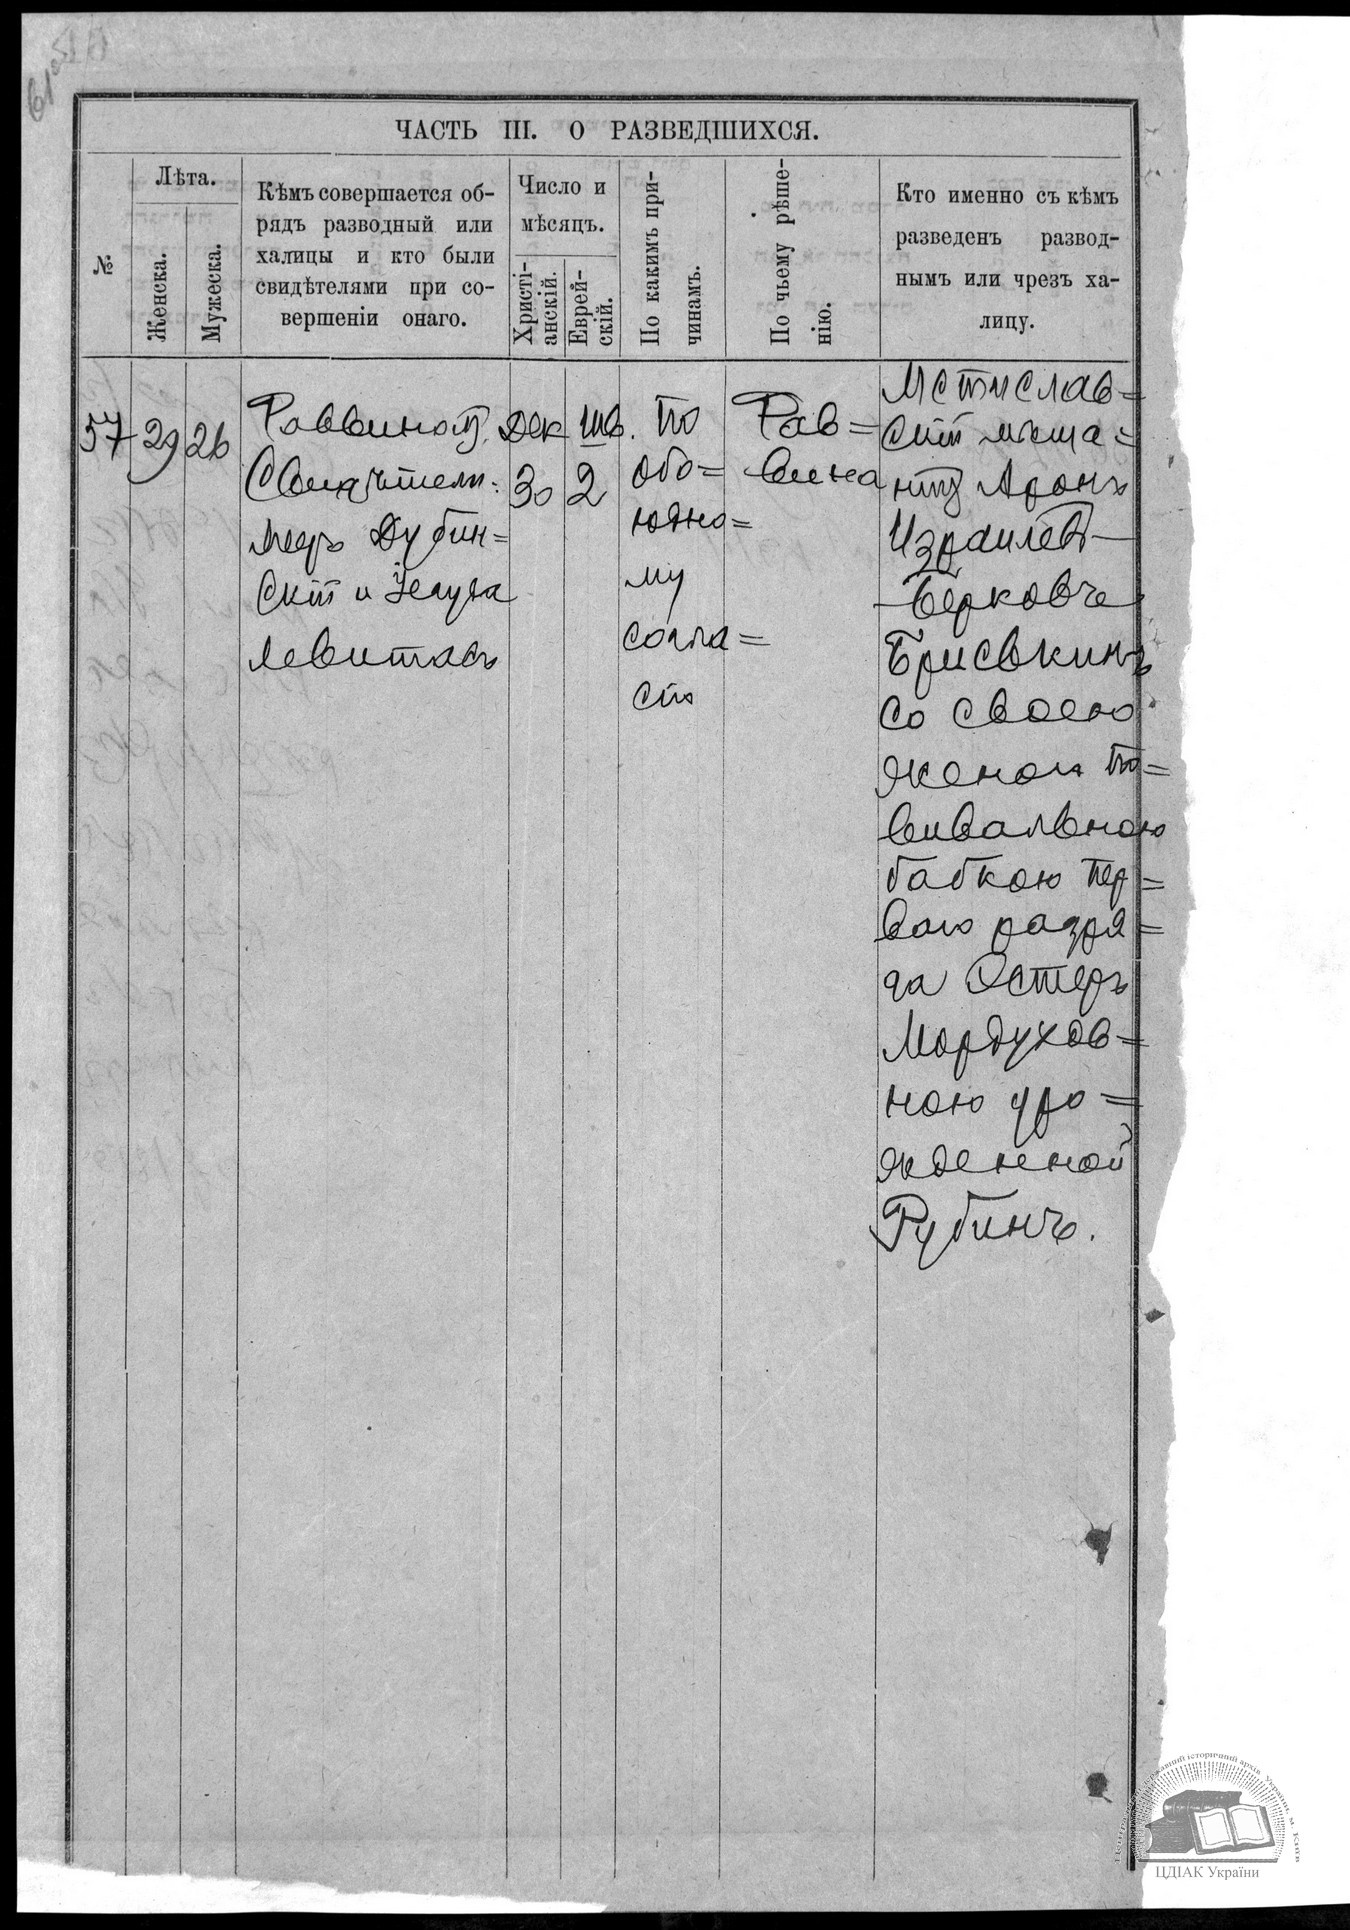 ЧАСТЬ III. О РАЗВЕДШИХСЯ.
№
Лѣта.
Женска.
Мужеска.
Кѣмъ совершается об-
рядъ разводный или
халицы и кто были
свидѣтелями при со-
вершеніи онаго.
Число и
мѣсяцъ.
Христі-
анскій.
Еврей-
скій.
По какимъ при-
чинамъ.
По чьему рѣше-
нію.
Кто именно съ кѣмъ
разведенъ развод-
нымъ или чрезъ ха-
лицу.
57
29
26
Раввиномъ.
Свидѣтели:
Мееръ Дубин=
скій и
Левитасъ
Дек
30
Шв.
2
По
обо=
юдно=
му
согла=
сію
Рав=
вина
Мстислав=
скій мѣща=
нинъ Аронъ
Израилев
Берковъ
Бриськинъ
со своею
женою по=
вивальною
бабкою пер=
ваго разря=
да Эстеръ
Мордухов=
ною уро=
жденной
Рубинъ.
ЦДІАК України